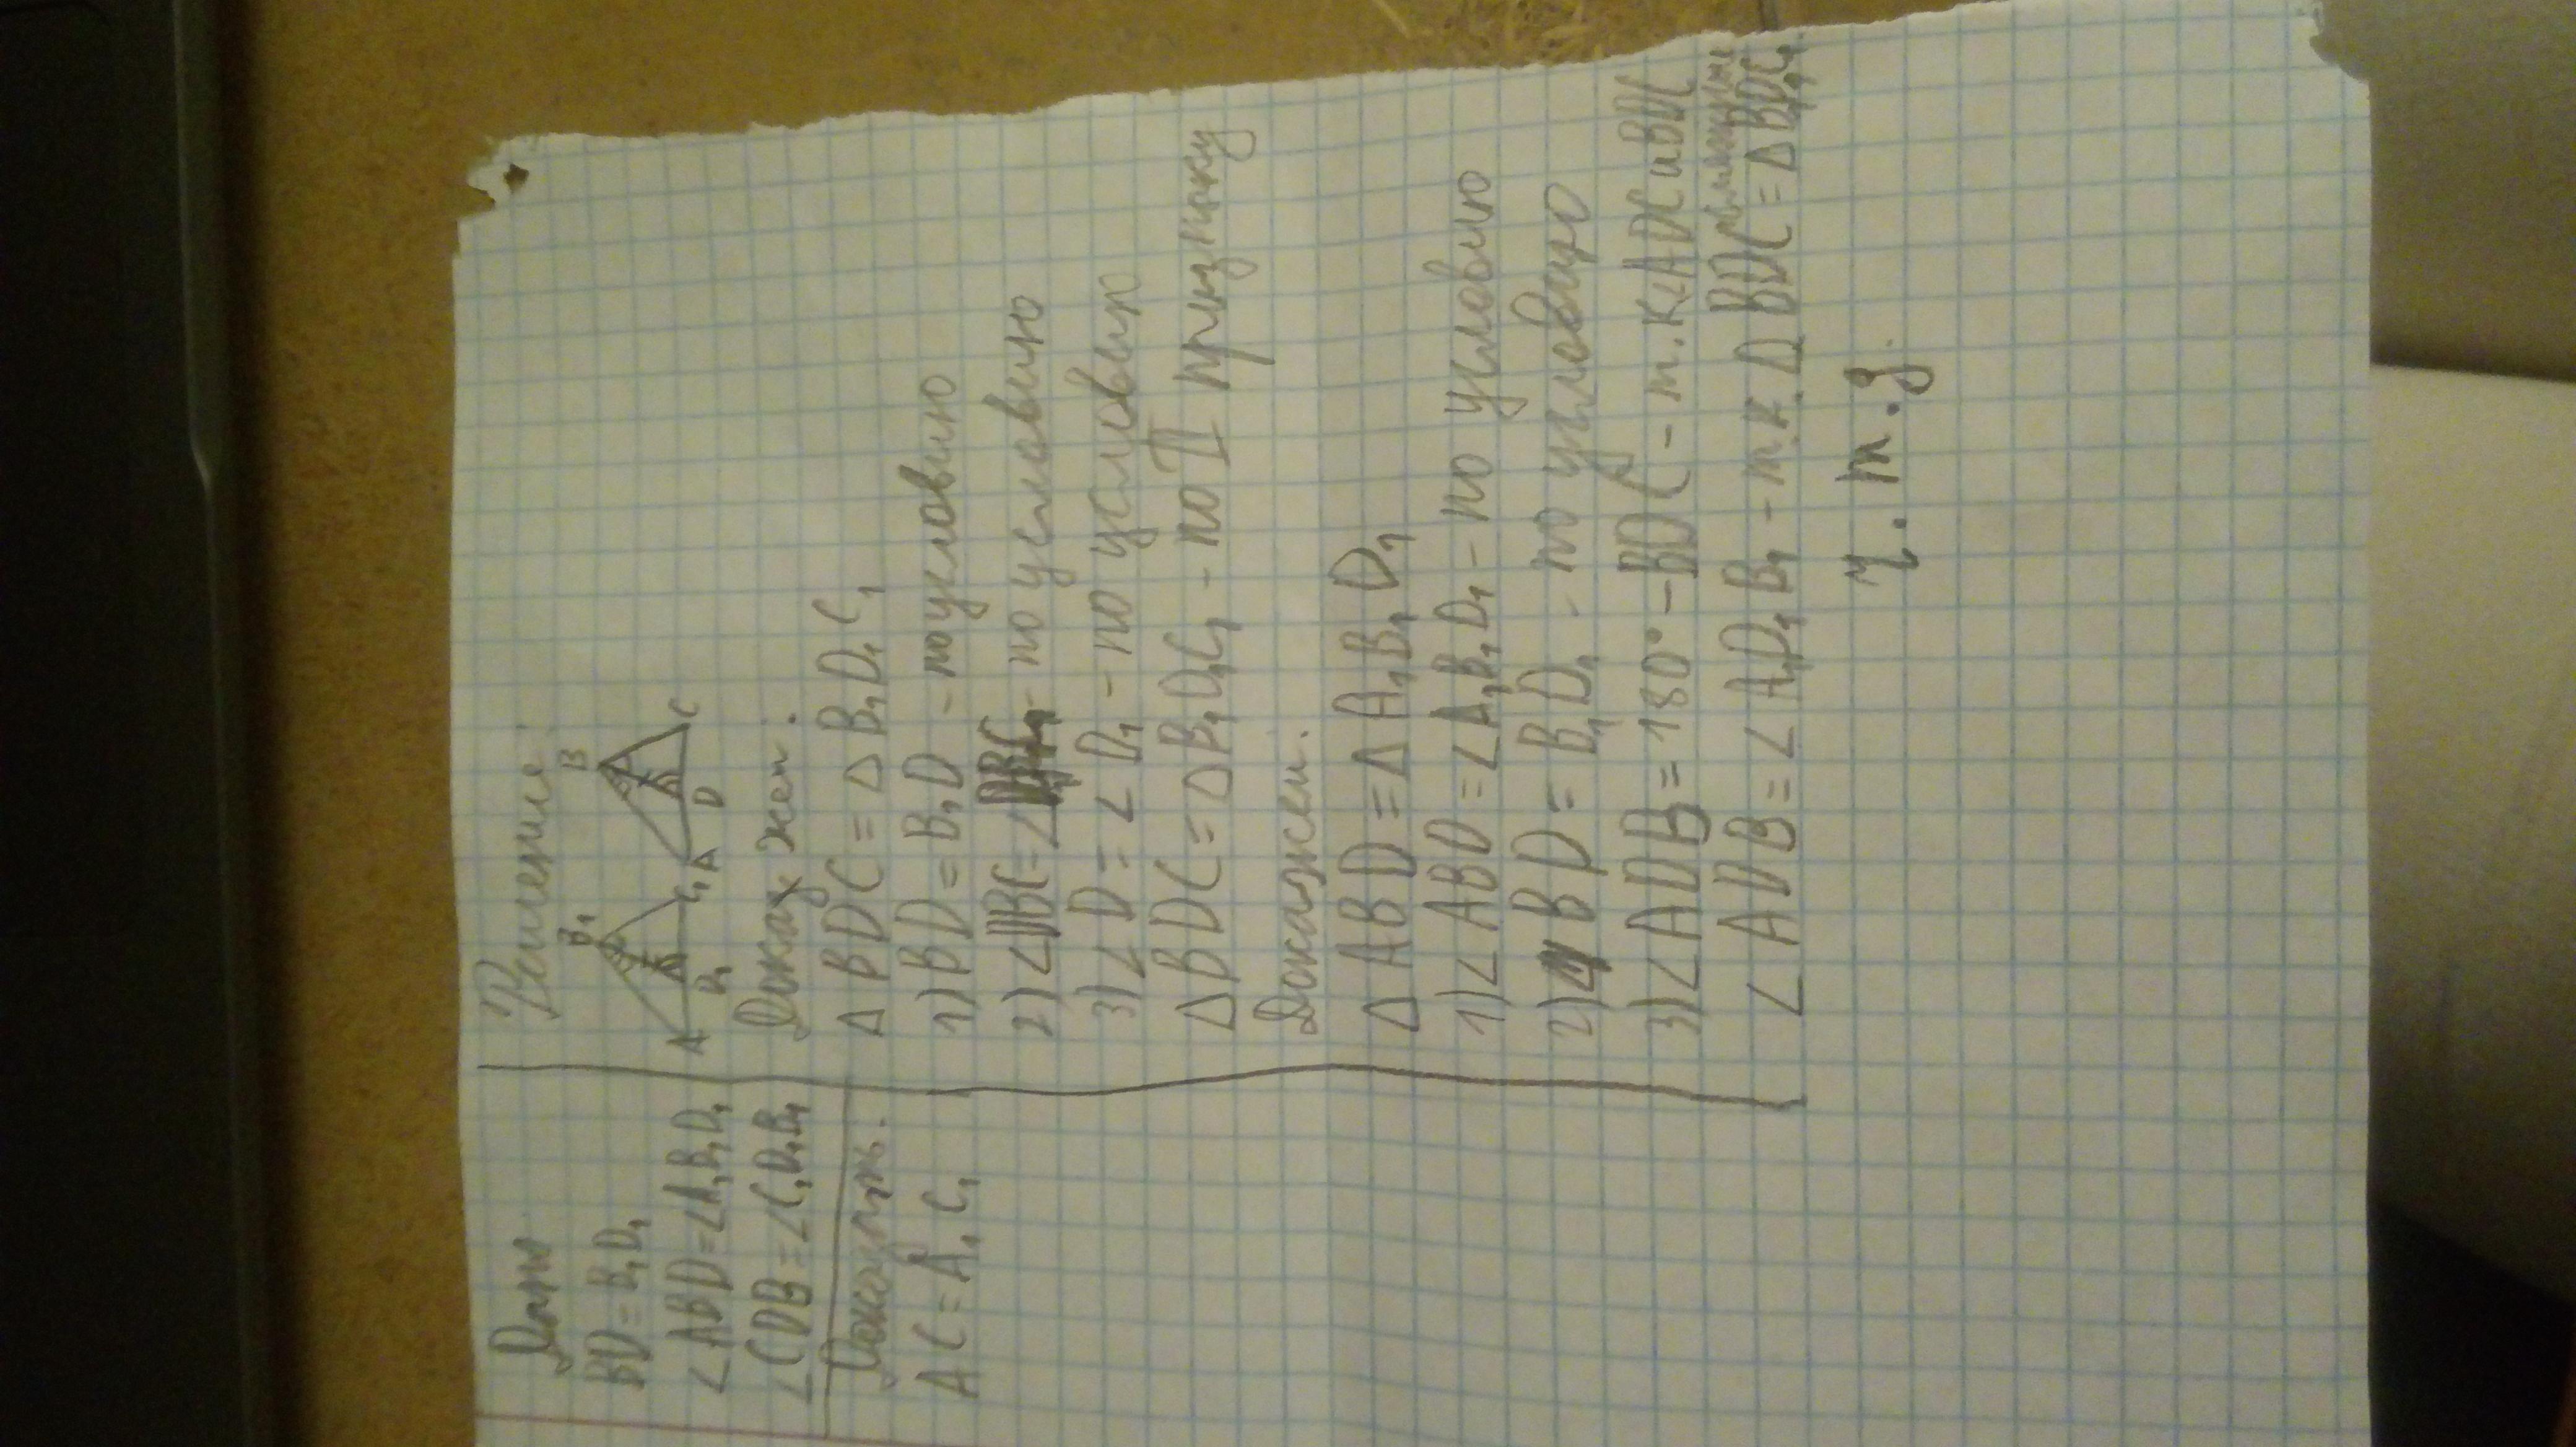 Дано
BD = B₁D₁
∠ABD = ∠A₁B₁D₁
∠CDB = ∠C₁D₁B₁
AC = A₁C₁
Решение:
B₁ B
A D₁ C₁ A D C
Докажем:
△ BDC = △ B₁D₁C₁
1) BD = B₁D - по условию
2) ∠DBC = ∠ - по условию
3) ∠D = ∠D₁ - по условию
△BDC = △B₁D₁C₁ - по II признаку
Докажем:
△ ABD = △ A₁B₁D₁
1) ∠ABD = ∠A₁B₁D₁ - по условию
2) BD = B₁D₁ - по условию
3) ∠ADB = 180° - BDC - т.к ∠ADC и BDC
смежные
∠ADB = ∠A₁D₁B₁ - т.к. △ BDC = △ B₁D₁C₁
ч.т.д.